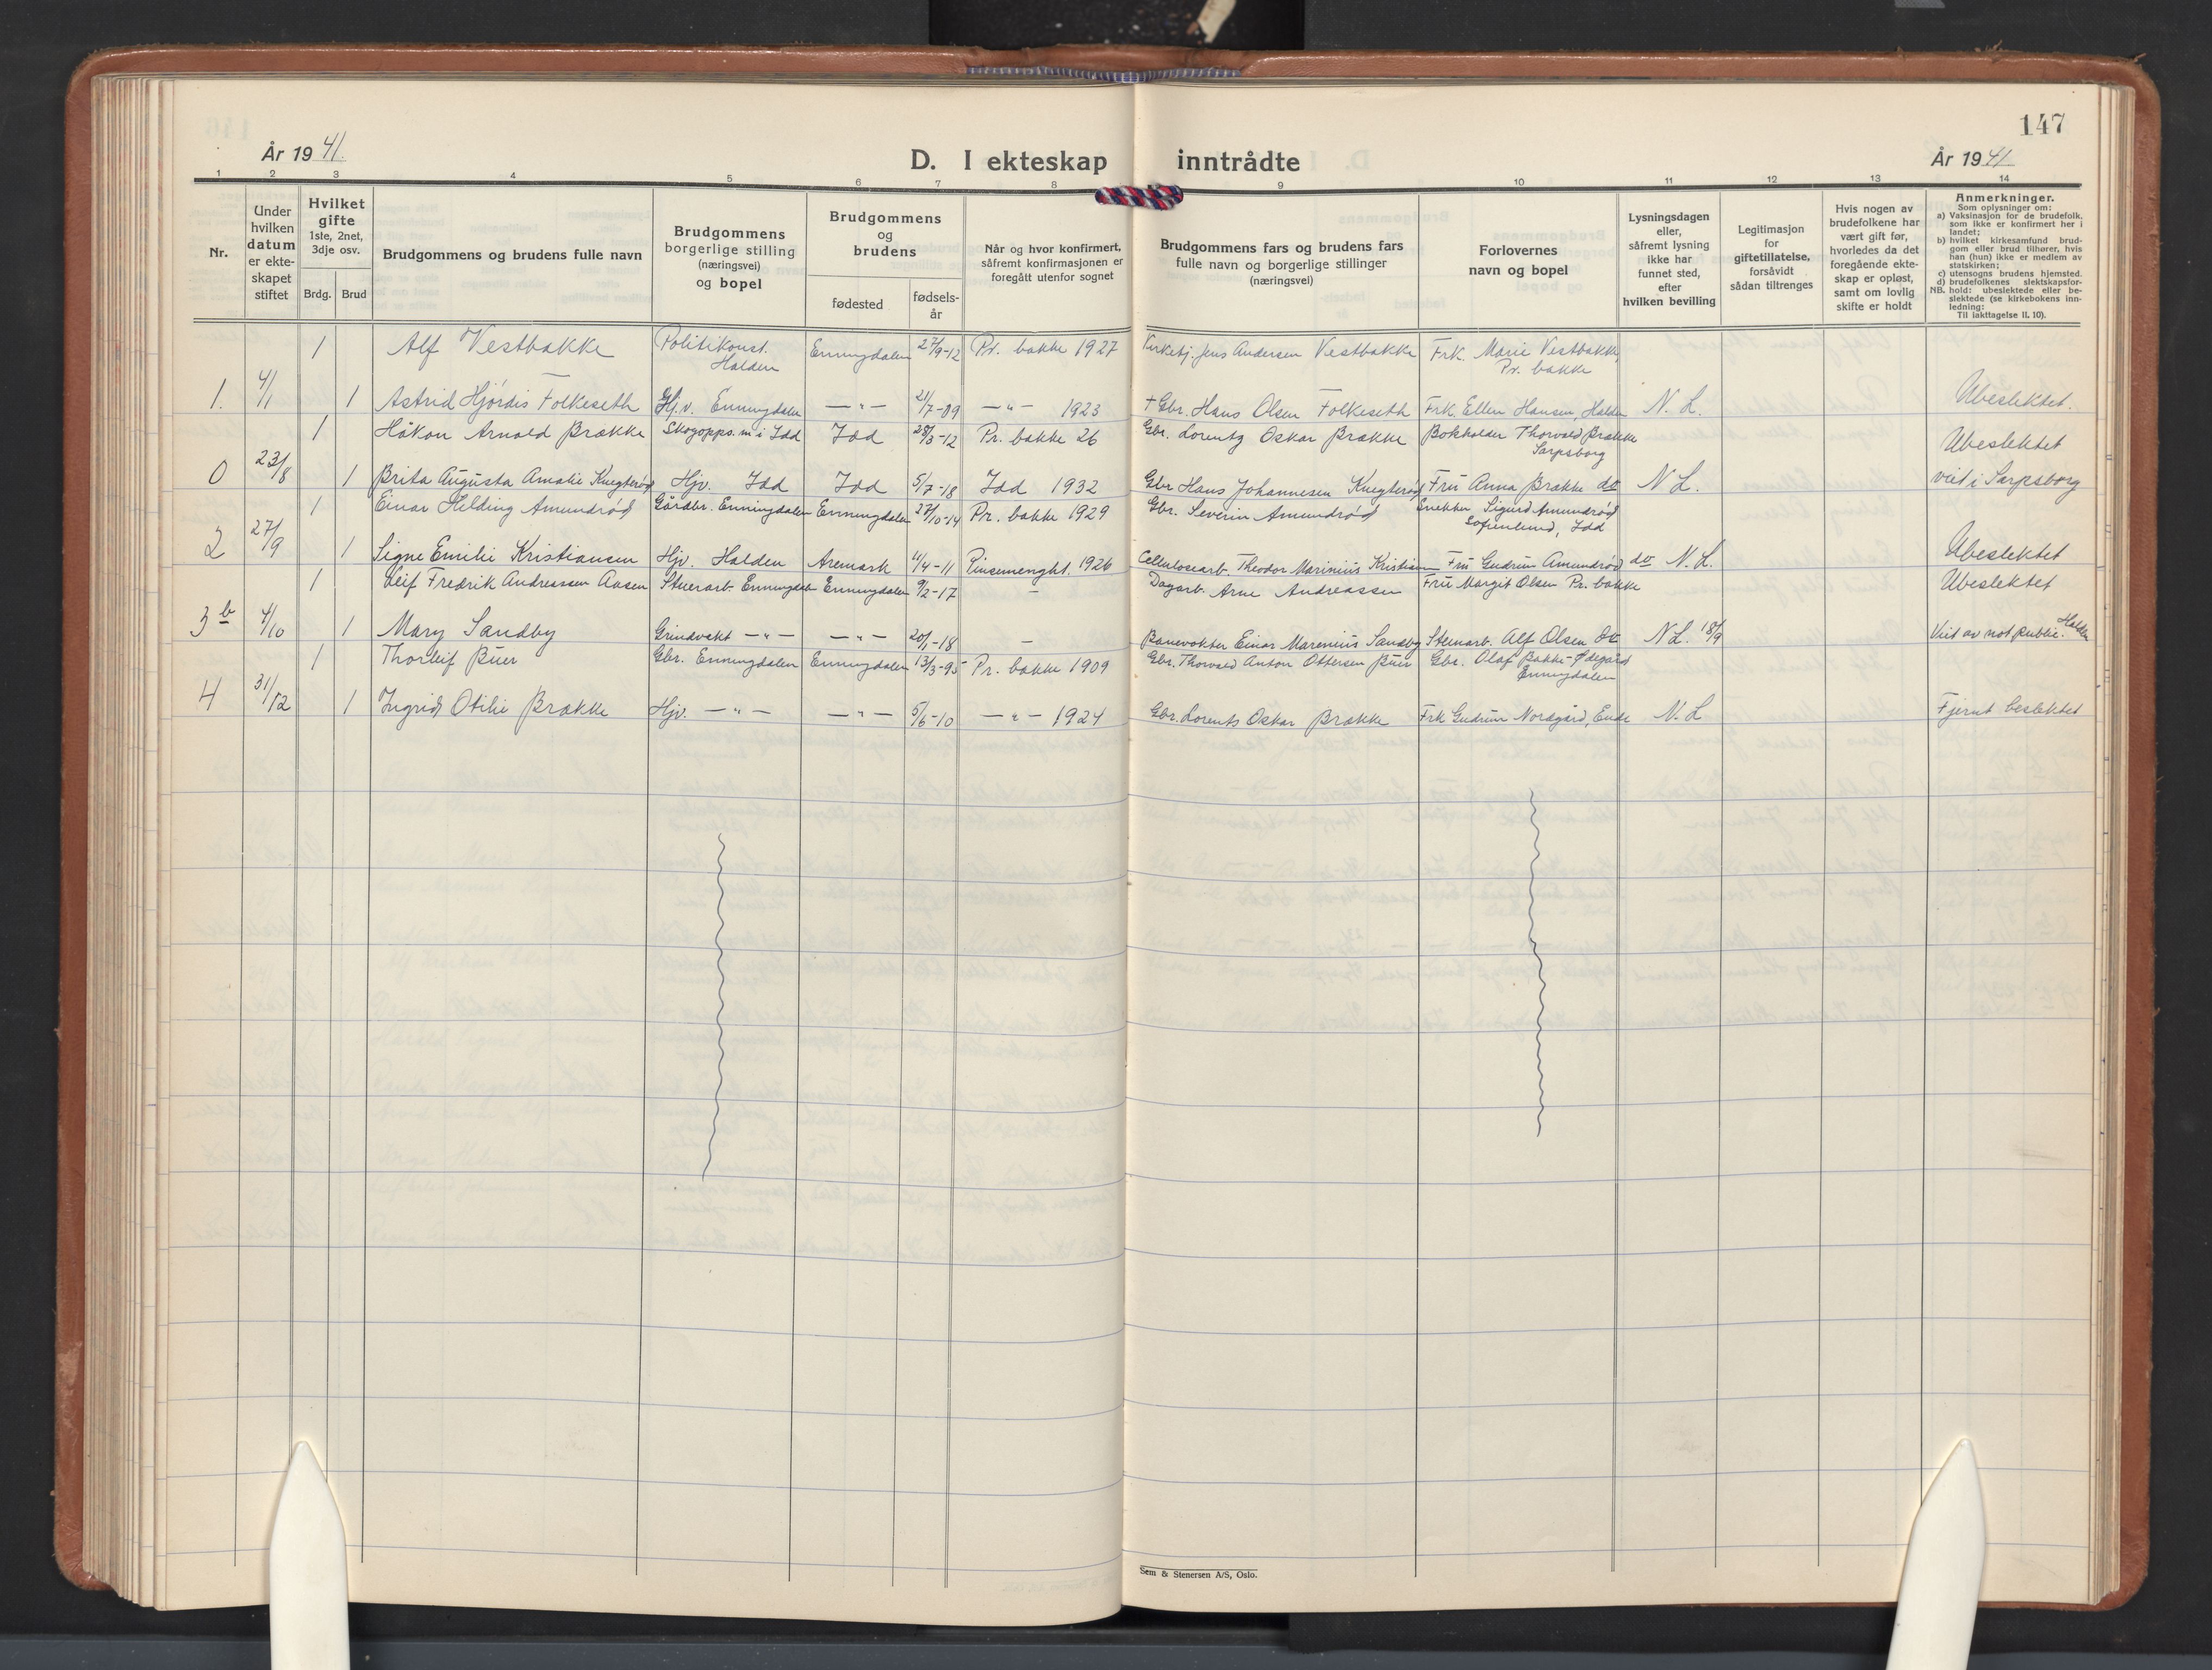 147
År 1941.
D. I ekteskap inntrådte
År 1941
1 2 3 4 5 6 7 8 9 10 11 12 13 14
Nr.
Under hvilken datum er ekteskapet stiftet
Hvilket gifte 1ste, 2net, 3dje osv.
Brdg. Brud
Brudgommens og brudens fulle navn
Brudgommens borgerlige stilling (næringsvei) og bopel
Brudgommens og brudens
fødested
fødselsår
Når og hvor konfirmert, såfremt konfirmasjonen er foregått utenfor sognet
Brudgommens fars og brudens fars fulle navn og borgerlige stillinger (næringsvei)
Forlovernes navn og bopel
Lysningsdagen eller, såfremt lysning ikke har funnet sted, efter hvilken bevilling
Legitimasjon for giftetillatelse, forsåvidt sådan tiltrenges
Hvis nogen av brudefolkene har vært gift før, hvorledes da det foregående ekteskap er opløst, samt om lovlig skifte er holdt
Anmerkninger.
Som oplysninger om:
a) Vaksinasjon for de brudefolk, som ikke er konfirmert her i landet;
b) hvilket kirkesamfund brudgom eller brud tilhører, hvis han (hun) ikke er medlem av statskirken;
c) utensogns brudens hjemsted.
d) brudefolkenes slektskapsforhold: ubeslektede eller beslektede (se kirkebokens innledning:
NB. Til iakttagelse II. 10).
1 Alf Vestbakke Politikonst. Halden Enningdalen 27/9-12 Pr. bakke 1927 Kirketj. Jens Andersen Vestbakke Frk. Marie Vestbakke, Pr. bakke
1. 4/1 1 Astrid Hjördis Folkeseth Hj.v. Enningdalen —„— 21/7-09 —„— 1923 + Gbr. Hans Olsen Folkeseth Frk. Ellen Hansen, Halden N. L. Ubeslektet.
1 Håkon Arnold Brække Skogopps.m i Idd Idd 28/3-12 Pr. bakke 26 Gbr. Lorentz Oskar Brække Bokholder Thorvald Brække Sarpsborg Ubeslektet
0 23/8 1 Brita Augusta Amalie Knegterød Hjv. Idd Idd 5/7-18 Idd 1932 Gbr Hans Johannesen Knegterød Fru Anna Brække do N L. viet i Sarpsborg
1 Einar Hilding Amundrød Gårdbr. Enningdalen Enningdalen 27/10-14 Pr. bakke 1929 Gbr. Severin Amundrød Snekker Sigurd Amundrød Sofienlund, Idd
2 27/9 1 Signe Emilie Kristiansen Hjv. Halden Aremark 4/4-11 Pinsemenght. 1926 Cellulosearb. Theodor Marinius Kristiansen Fru Gudrun Amundrød do N. L. Ubeslektet
1 Leif Fredrik Andreassen Aasen Stenarb. Enningdalen Enningdalen 9/2-17 — Dagarb. Arne Andreassen Fru Margit Olsen Pr. bakke Ubeslektet
3 b 4/10 1 Mary Sandby Grindvakt —„— —„— 20/1-18 — Banevokter Einar Marenius Sandby Stenarb. Alf Olsen do N L. 18/9 Viet av not. public. Halden
1 Thorleif Buer Gbr. Enningdalen Enningdalen 13/3-95 Pr. bakke 1909 Gbr. Thorvald Anton Ottersen Buer Gbr. Olaf Bakke-Ødegård Enningdalen
4 31/12 1 Ingrid Otilie Brække Hjv. —„— —„— 5/6-10 —„— 1924 Gbr. Lorents Oskar Brække Frk Gudrun Nordgård, Ende N. L Fjernt beslektet
Sem & Stenersen A/S, Oslo.